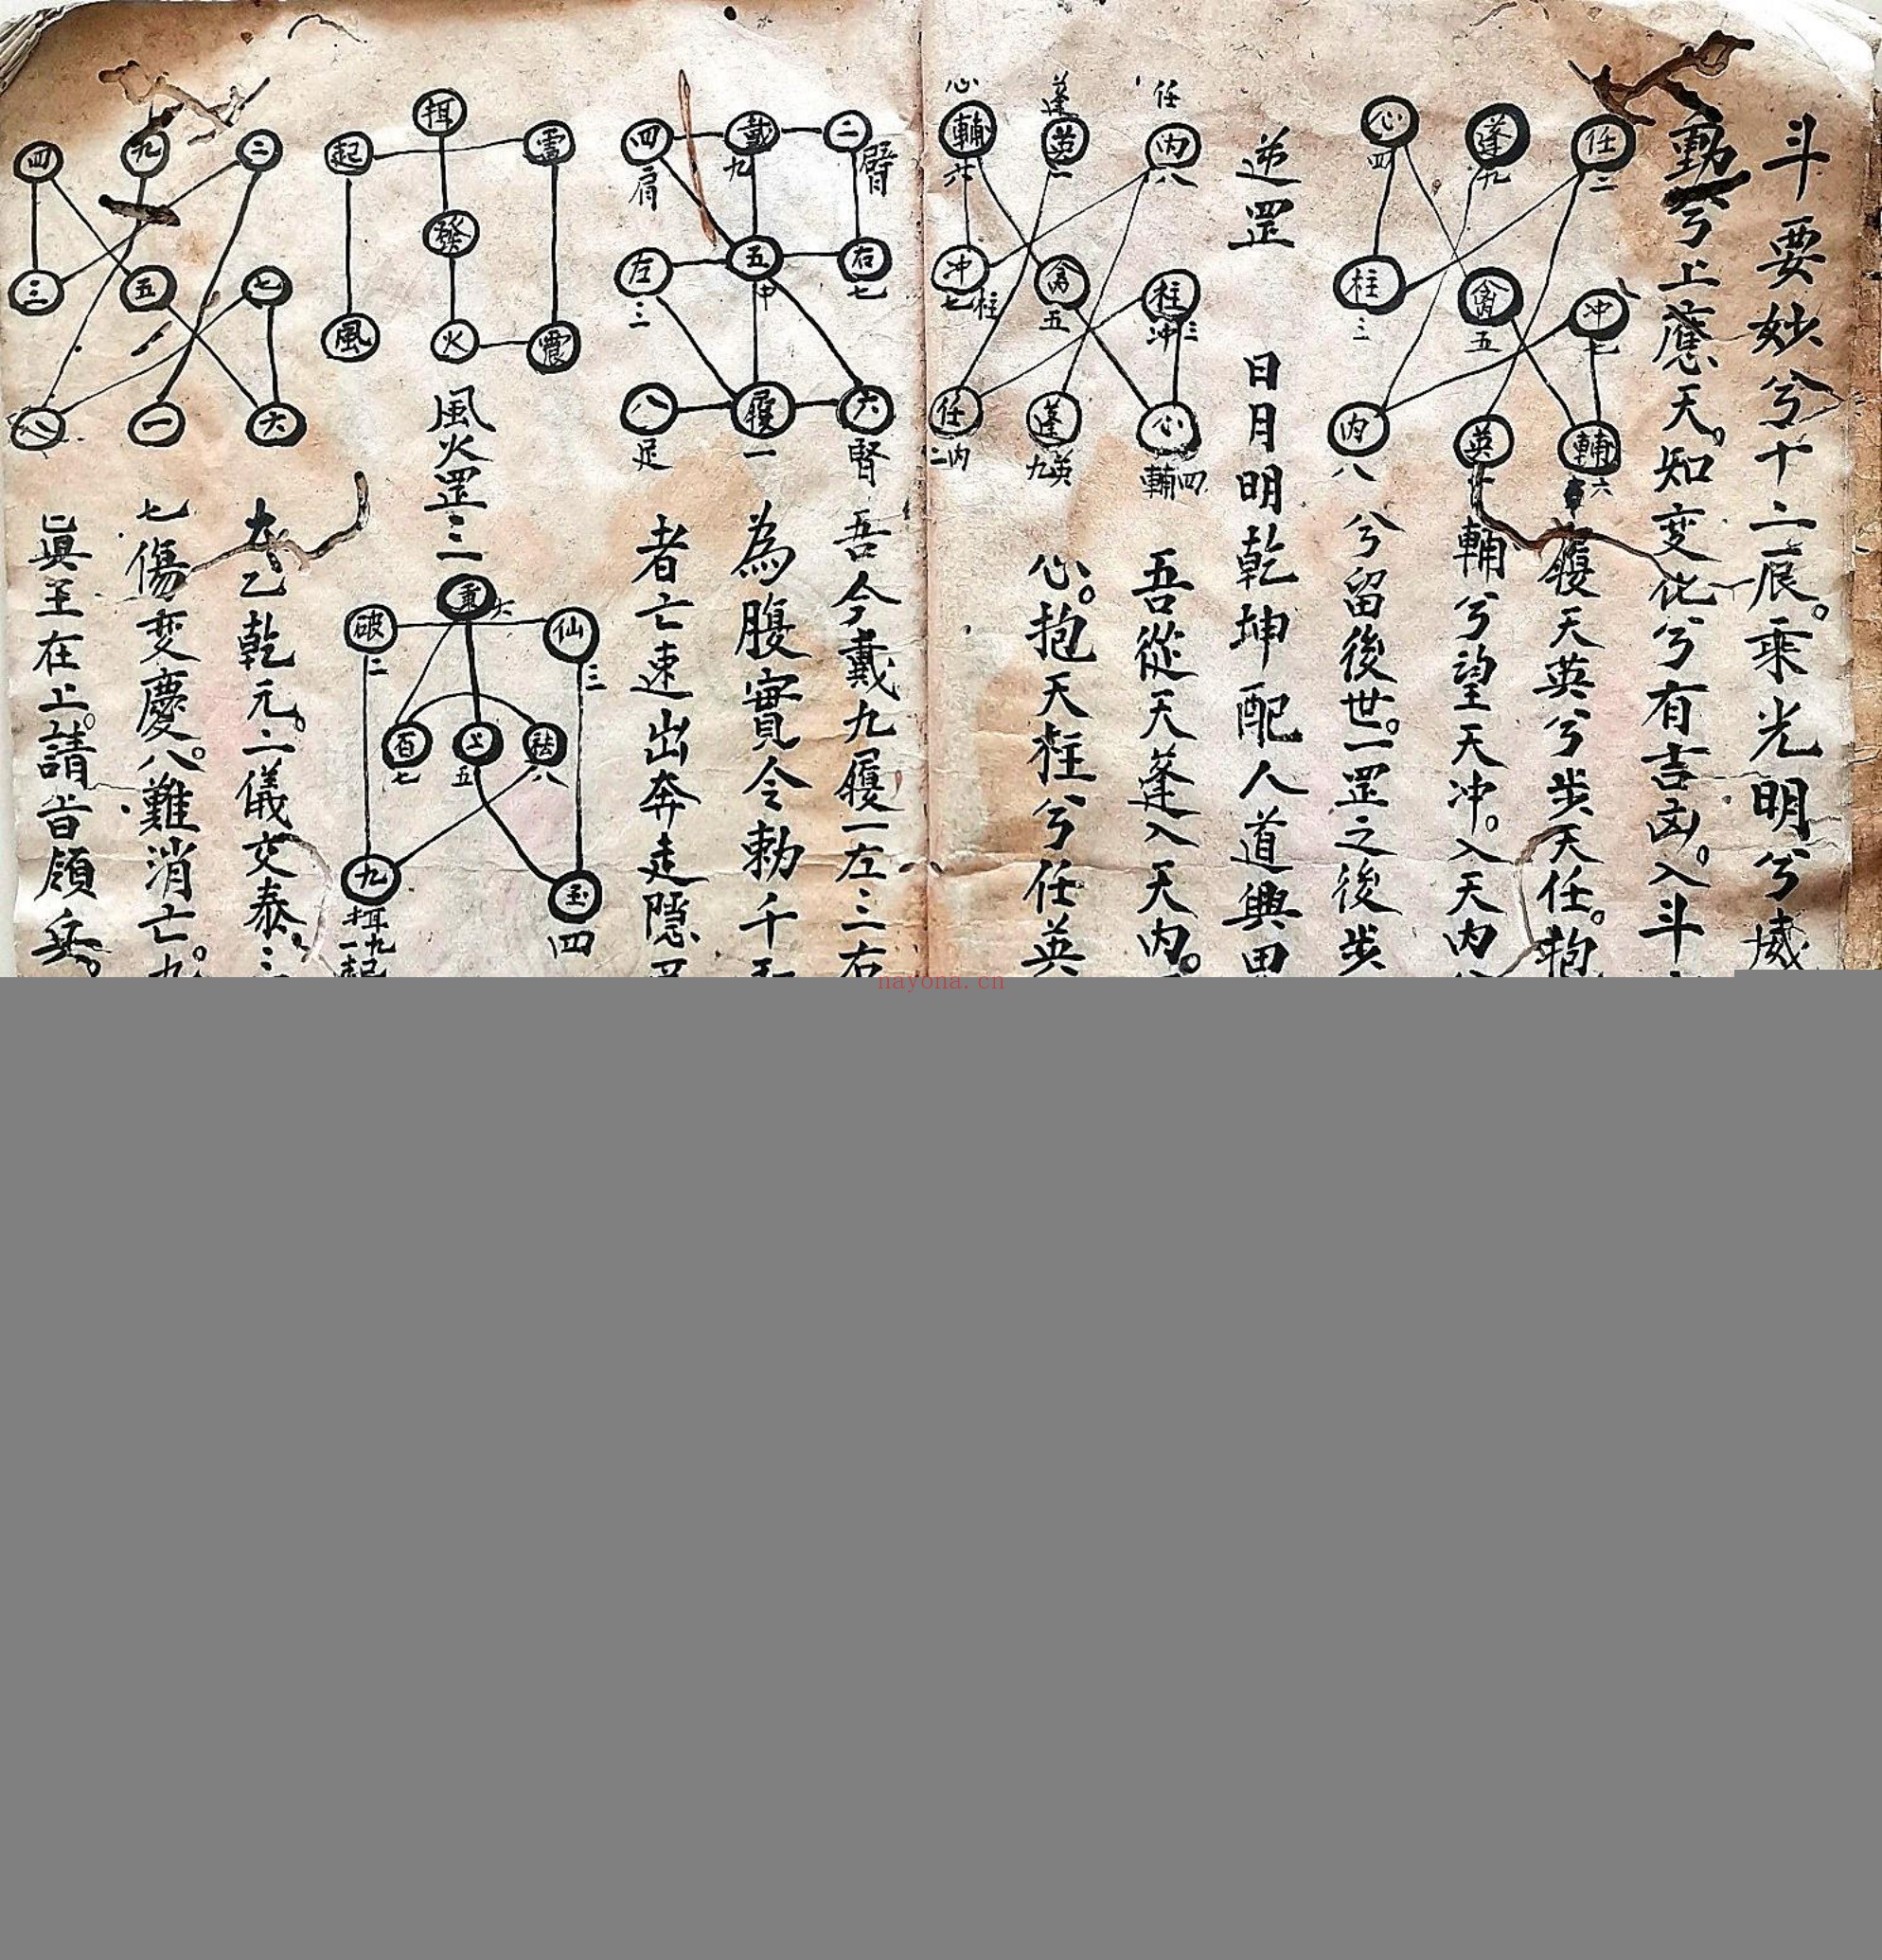 斗要妙兮十二辰。乘光明兮威
動兮上應天。知变化兮有吉凶。入斗
任二
蓬九
心四
冲七
禽五
柱三
輔六
英一
内八
履天英兮步天任。抱
輔兮望天冲。入天内
兮留後世。一罡之後步
逆罡
日月明乾坤配人道興
任
内八
蓬
英一
心
輔六
柱冲三
禽五
冲七柱
心輔四
蓬九英
任二内
吾從天蓬入天内。
心。抱天柱兮任英
二臂
戴九
四肩
右七
五中
左三
六腎
履一
八足
吾今戴九履一左三右
為腹實令勅千
者亡速出奔走隱
雷
揖
起
發
震
火
風
風火罡三
仙三
重六
破二
祛八
上五
百七
玉四
九
揖九
一起
二
九
四
七
五
三
六
一
八
太乙乾元。二儀交泰。三
七傷变慶。八難消亡。九
眞至在上。請旨領兵。
nayona.cn